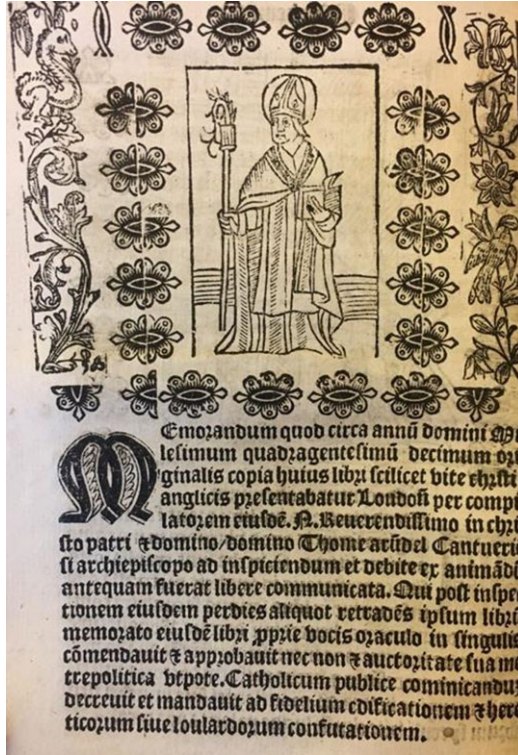 MEmorandum quod circa annū domini Mi
lesimum quadragentesimū decimum ori
ginalis copia huius libri scilicet vite christi
anglicis presentabatur Londoñ per compi
latorem eiusdē. N. Reuerendissimo in chri
sto patri ⁊ domino/domino Thome arūdel Cantuerie
si archiepiscopo ad inspiciendum et debite ex animādū
antequam fuerat libere communicata. Qui post inspe
tionem eiusdem perdies aliquot retradēs ipsum librū
memorato eiusdē libri ꝓprie vocis oraculo in singulis
cōmendauit ⁊ approbauit nec non ⁊ auctoritate sua me
trepolitica vtpote. Catholicum publice cominicandum
decreuit et mandauit ad fidelium edificationem ⁊ here
ticorum siue loulardorum confutationem.